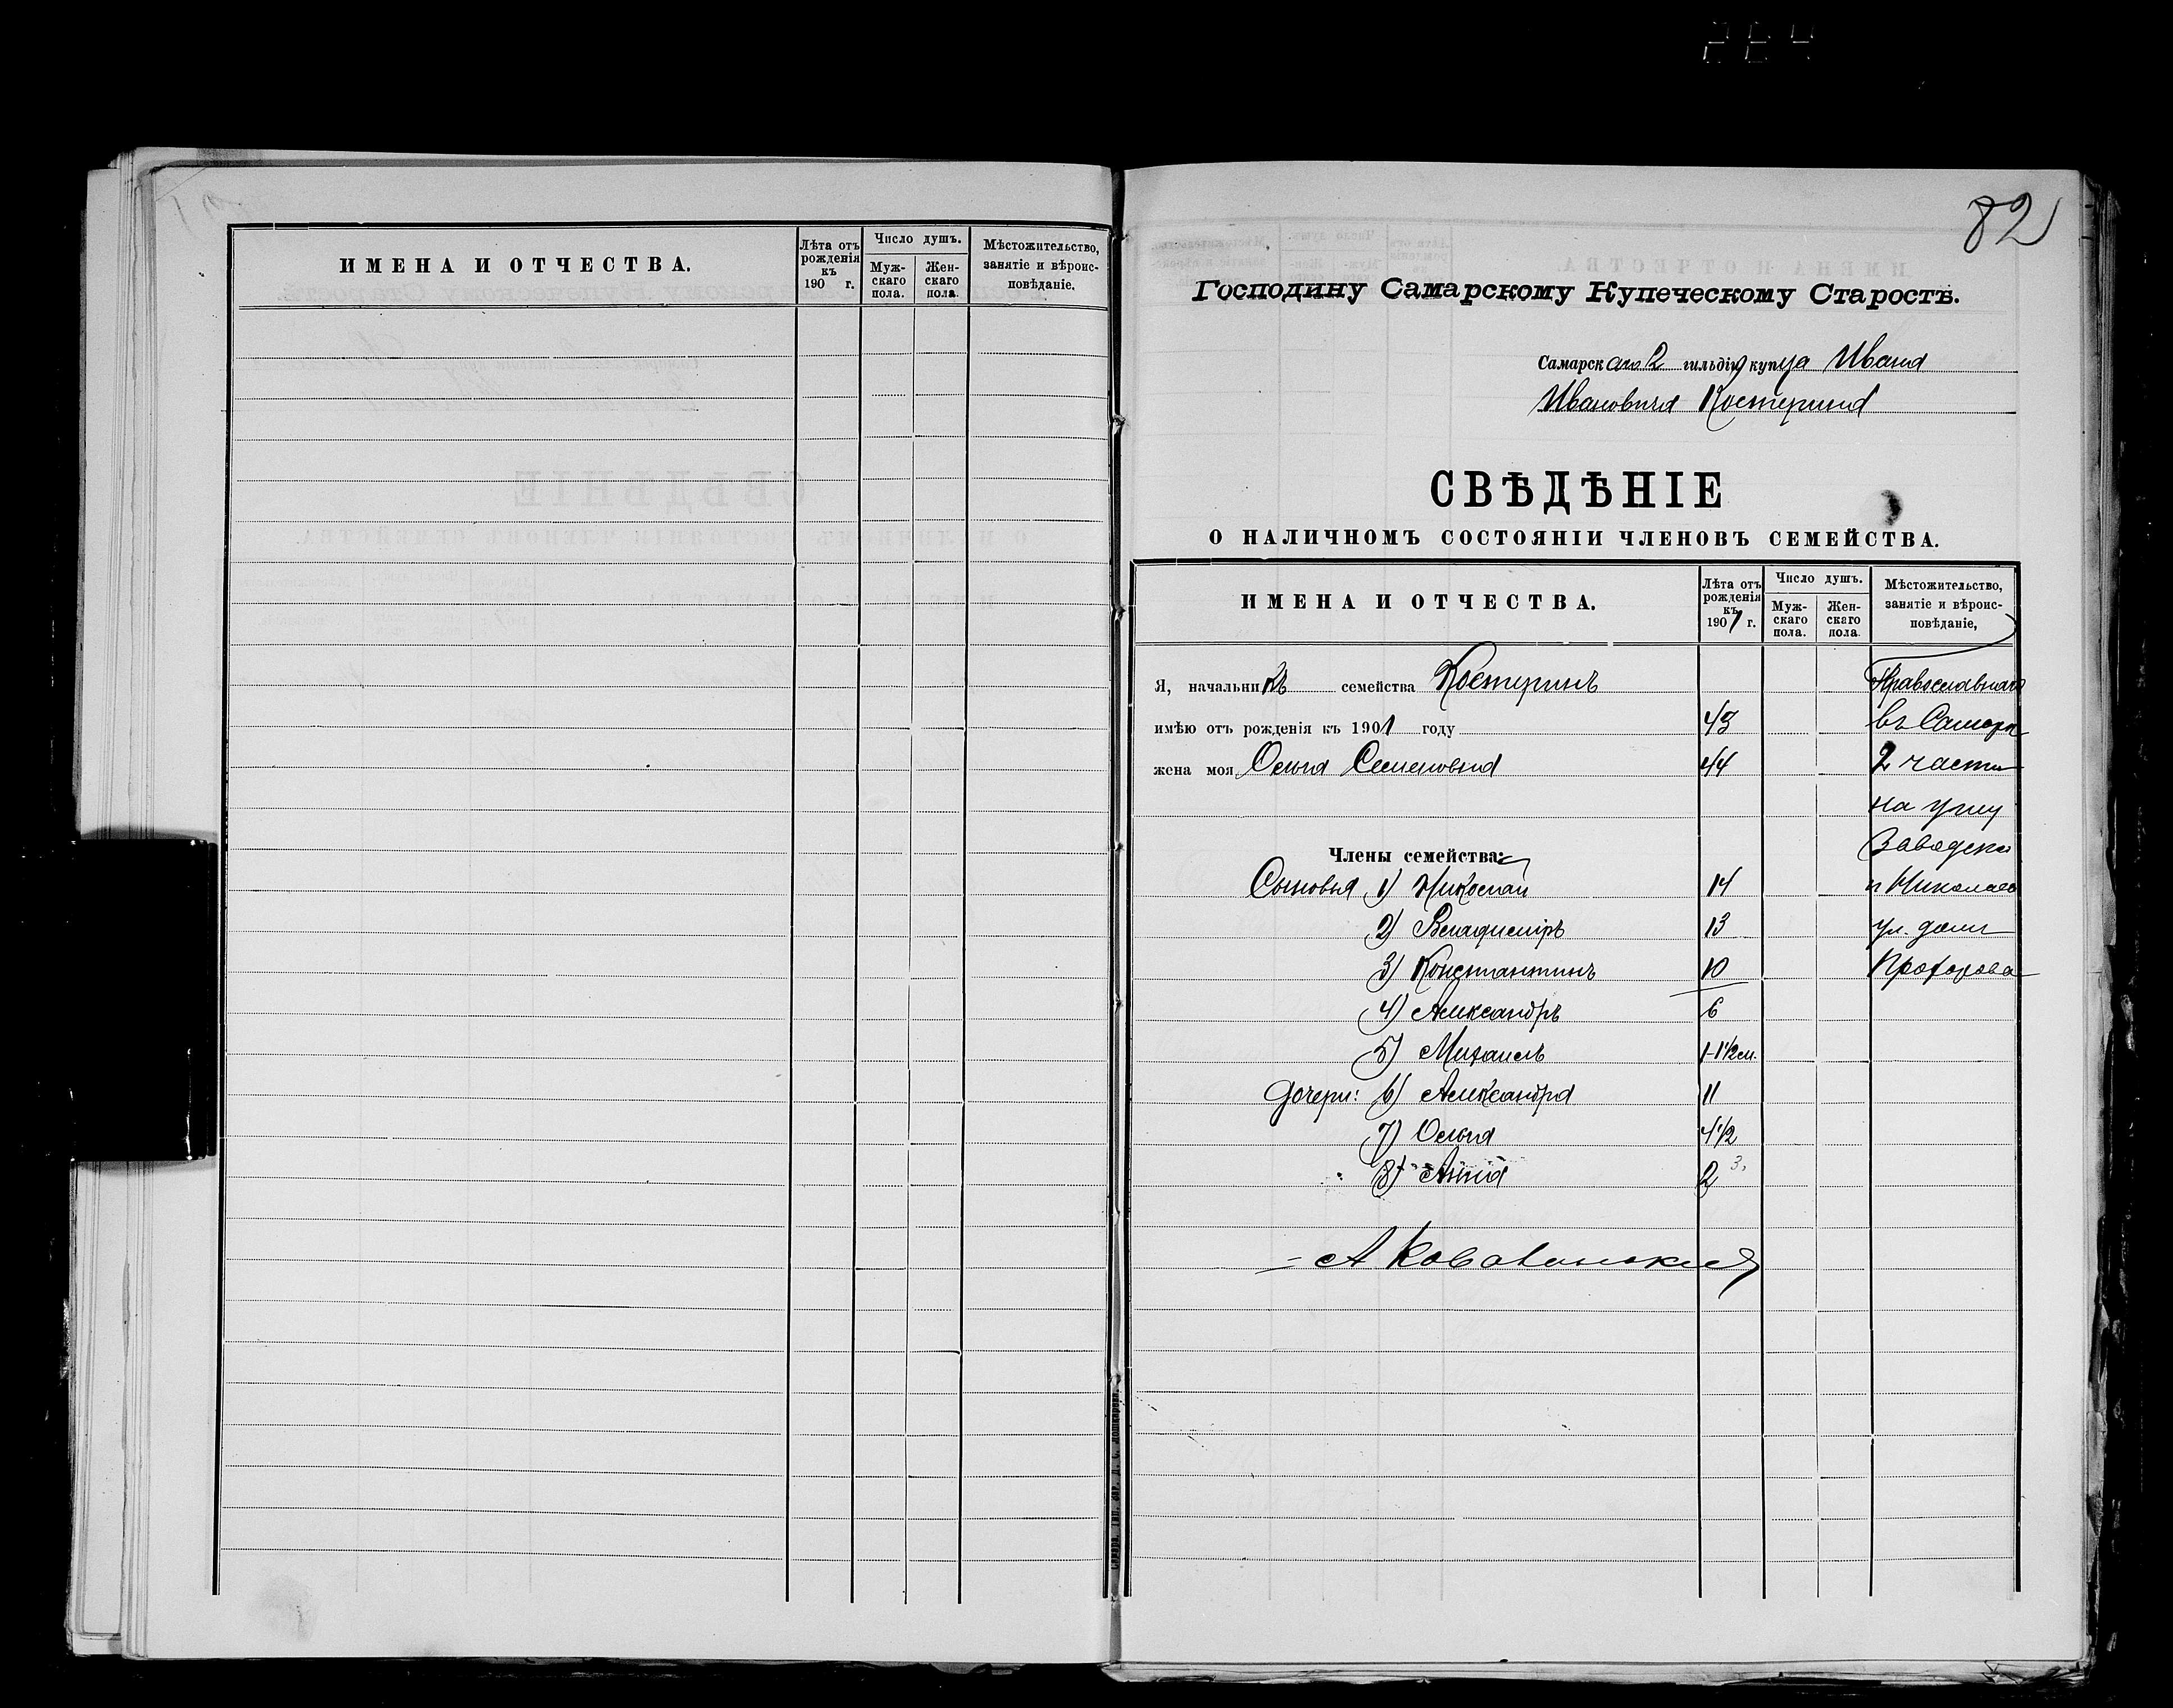 ИМЕНА И ОТЧЕСТВА.
Лѣта отъ рожденія къ 190 г.
Число душъ.
Мужскаго пола.
Женскаго пола.
Мѣстожительство, занятіе и вѣроисповѣданіе.
82
Господину Самарскому Купеческому Старостѣ.
Самарскаго 2 гильдіи купца Ивана
Ивановича Костерина
СВѢДѢНІЕ
О НАЛИЧНОМЪ СОСТОЯНІИ ЧЛЕНОВЪ СЕМЕЙСТВА.
ИМЕНА И ОТЧЕСТВА.
Лѣта отъ рожденія къ 1901 г.
Число душъ.
Мужскаго пола.
Женскаго пола.
Мѣстожительство, занятіе и вѣроисповѣданіе,
Я, начальникъ семейства Костеринъ Православнаго
имѣю отъ рожденія къ 1901 году 43 въ Самарѣ
жена моя Ольга Семеновна 44 2 части
на углу
Члены семейства: Заводской
Сыновья 1) Николай 14 и Николаев
2) Владиміръ 13 ул. домъ
3) Константинъ 10 Прохорова
4) Александръ 6
5) Михаилъ 1-1½ м.
дочери: 6) Александра 11
7) Ольга 4½
8) Анна 2 3.
Самара. Тип. бар. Д. С. Мошкарова.